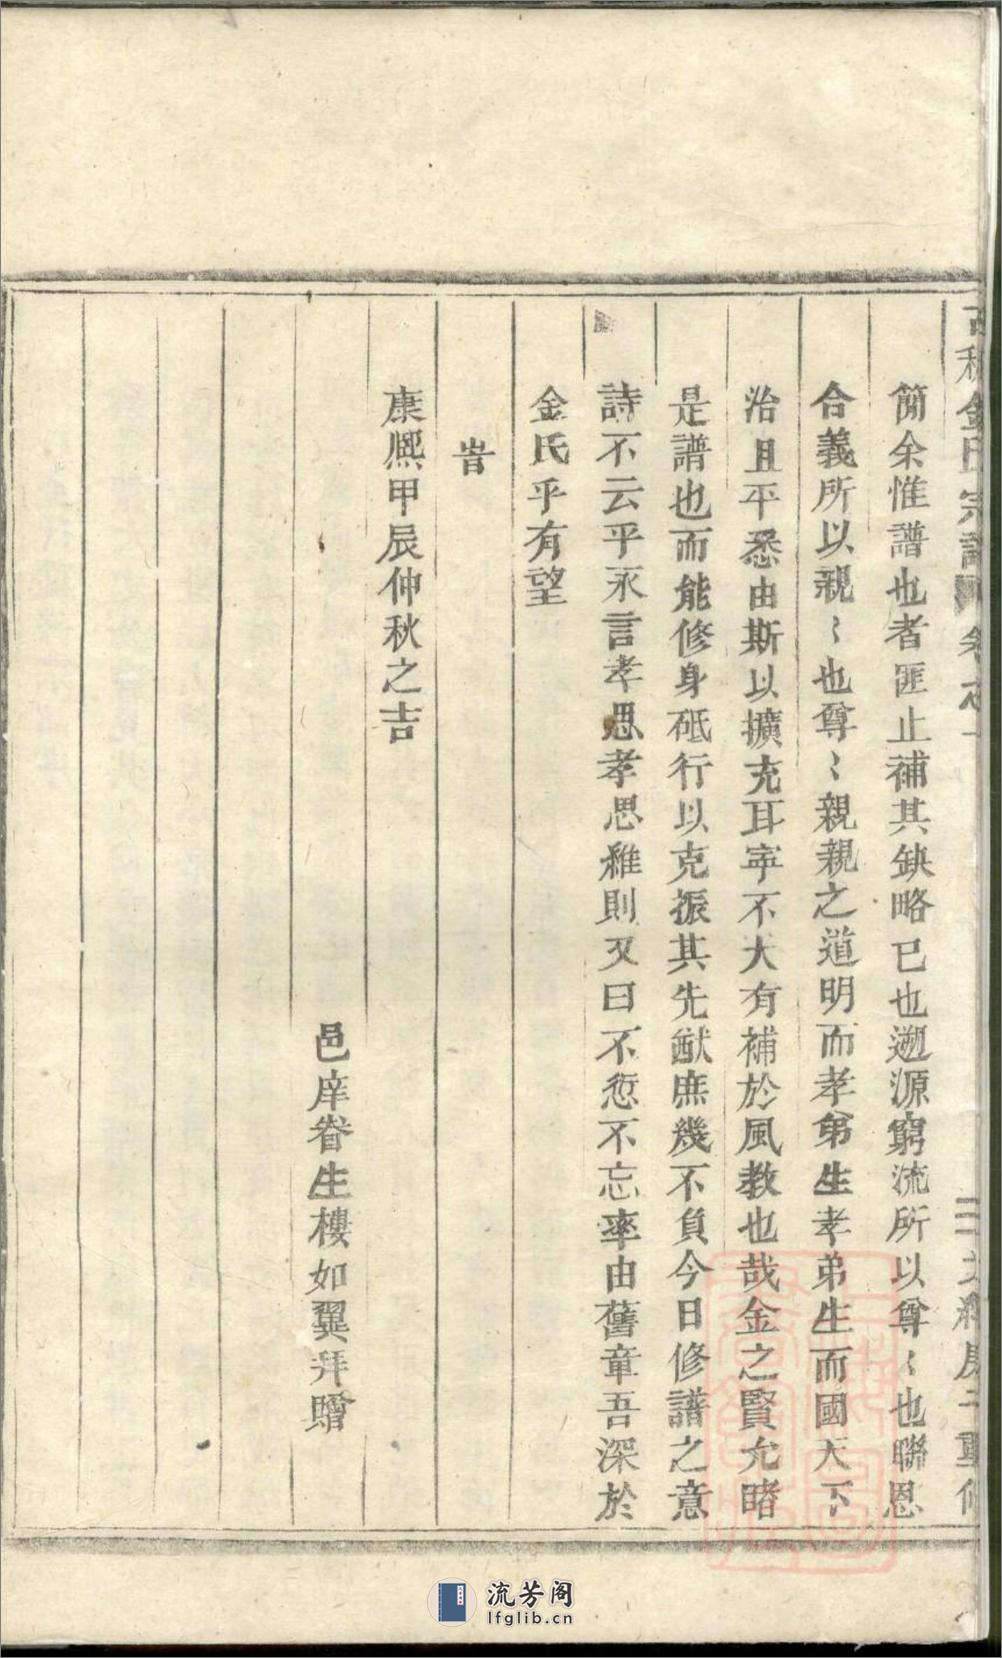 簡余惟譜也者匪止補其缺略已也遡源窮流所以尊〻也聯恩
合義所以親〻也尊〻親親之道明而孝弟生孝弟生而國天下
治且平悉由斯以擴充耳寜不大有補於風教也哉金之賢允睹
是譜也而能修身砥行以克振其先猷庶幾不負今日修譜之意
詩不云乎永言孝思孝思維則又曰不愆不忘率由舊章吾深於
金氏乎有望
旹
康熙甲辰仲秋之吉
邑庠眷生樓如翼拜贈
流芳阁
lfglib.cn